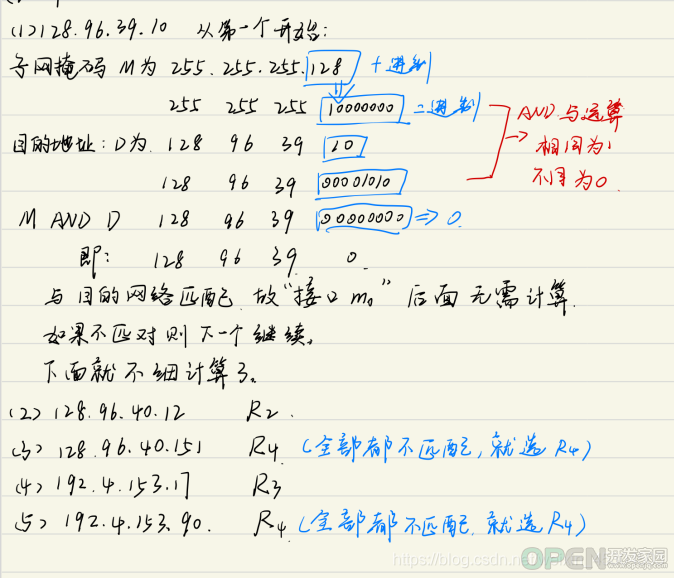 (1) 128.96.39.10 从第一个开始:
子网掩码 M为 255.255.255.128 十进制
255 255 255 10000000 二进制
AND 与运算
相同为1
不同为0.
目的地址: D为 128 96 39 10
128 96 39 00001010
M AND D 128 96 39 00000000 => 0.
即: 128 96 39 0
与目的网络匹配 故“接口m0” 后面无需计算.
如果不匹对则下一个继续。
下面就不细计算了。
(2) 128.96.40.12 R2.
(3) 128.96.40.151 R4 (全部都不匹配,就选R4)
(4) 192.4.153.17 R3
(5) 192.4.153.90. R4 (全部都不匹配.就选R4)
https://blog.csdn.net/
OPEN开发家园